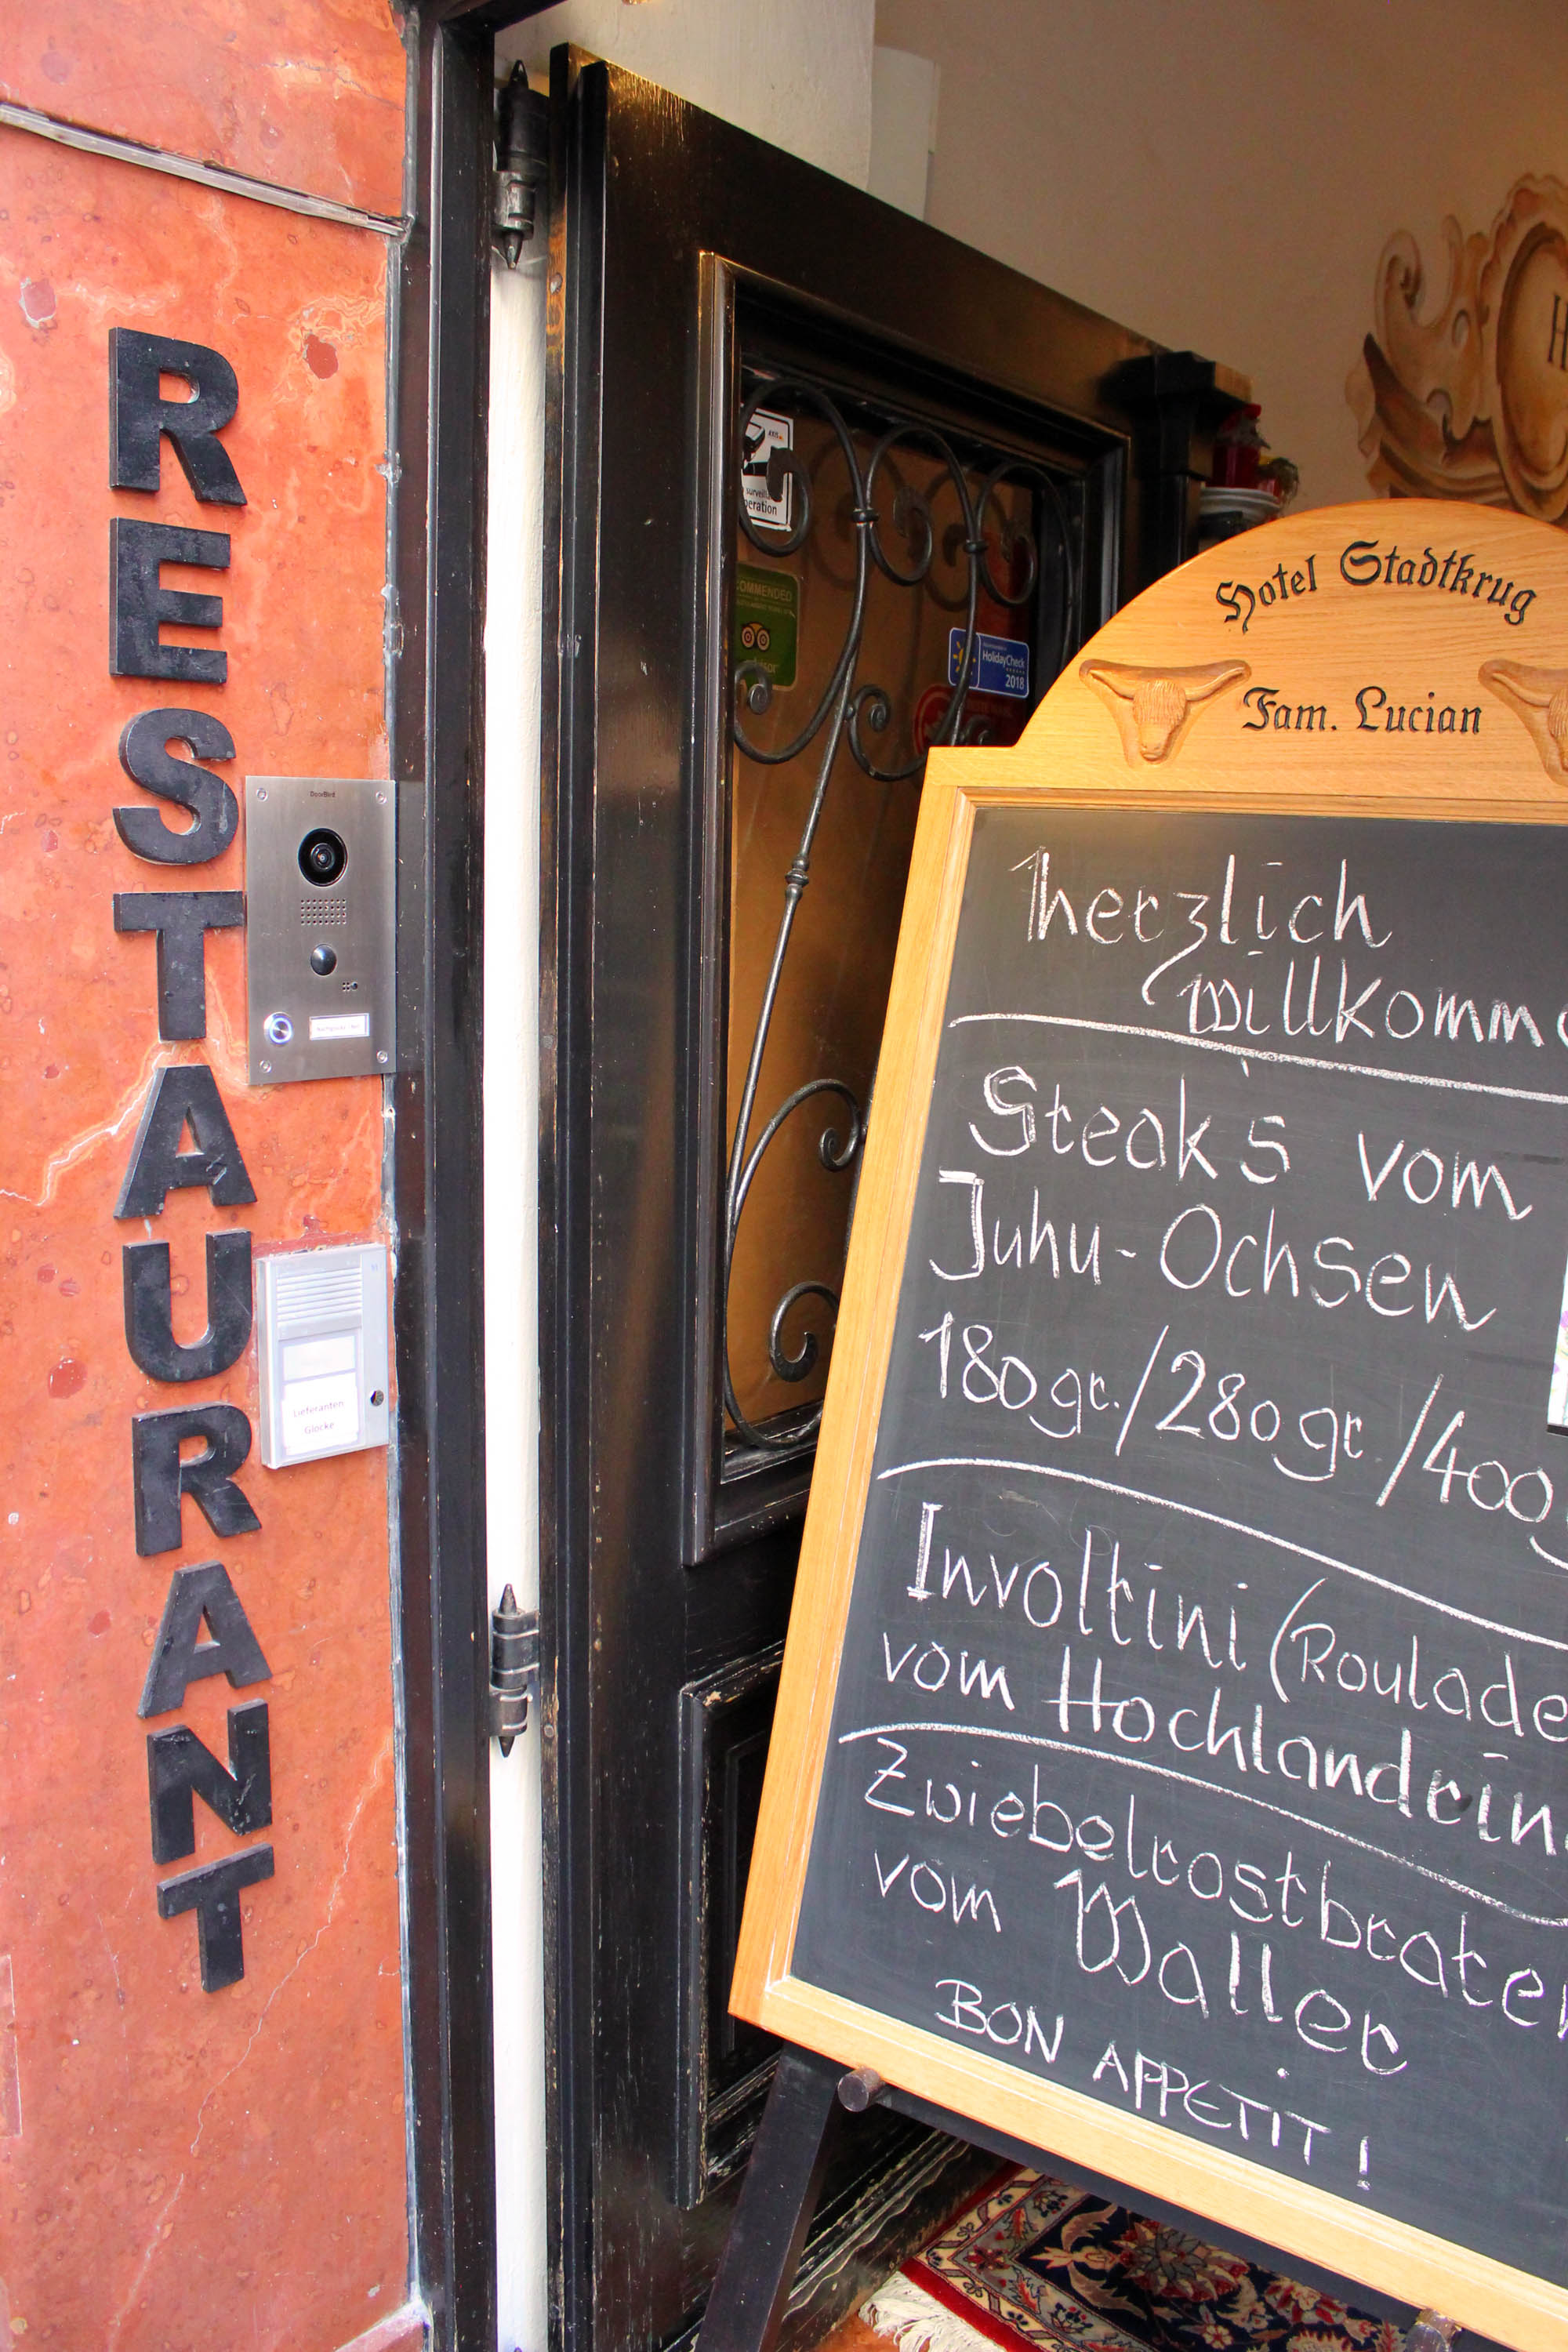 RESTAURANT
DoorBird
Lieferanten
Glocke
COMMENDED
HolidayCheck
2018
H
Hotel Stadtkrug
Fam. Lucian
herzlich
willkomme
Steaks vom
Juhu-Ochsen
180gr./280gr./400g
Involtini (Roulade
vom Hochlandrin
Zwiebelrostbraten
vom Waller
BON APPETIT!